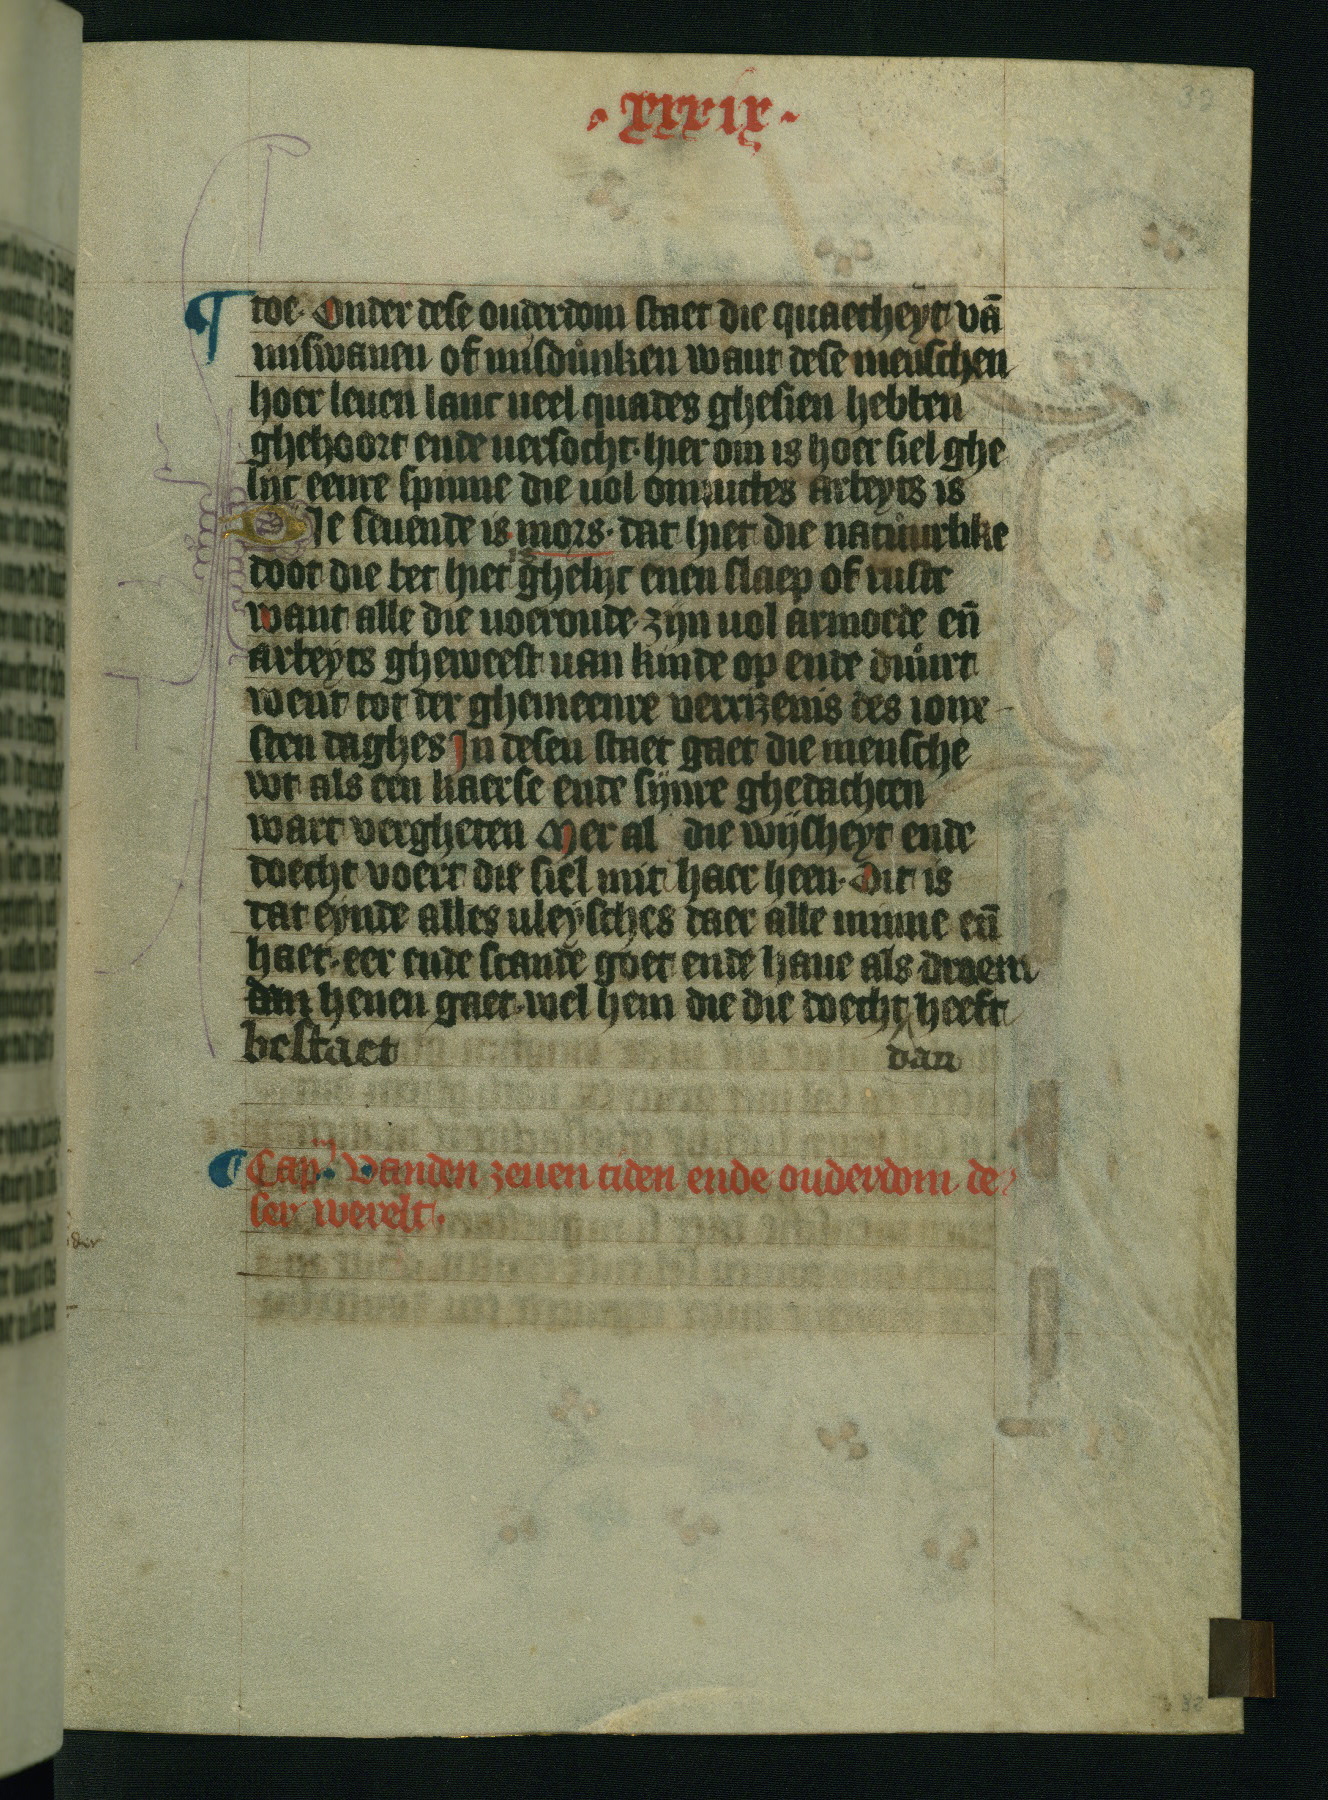 · xxxix ·
toe· Onder dese ouderdom staet die quaetheyt vā
miswanen of misdůnken want dese menschen
hoer leuen lanc ueel quades ghesien hebben
ghehoort ende uersocht· hier om is hoer siel ghe
lijc eenre spinne die uol onnuttes arbeyts is
Die seuende is mors· dat hiet die natůurlike
doot die ter hier is ghelijc enen slaep of rust
want alle die uoeroude· zijn uol armoede eñ
arbeyts gheweest uan kinde op ende důurt
went tot der ghemeenre verrizenis des ionx
sten daghes In desen staet gaet die mensche
wt als een kaerse ende sijnre ghedachten
wart vergheten Mer al die wijsheyt ende
doecht voert die siel mit haer heen· Dit is
dat eynde alles uleysches daer alle minne eñ
haet· eer ende scande goet ende haue als droem
dan henen gaet· wel hem die die doecht heeft
bestaet dan
Capm. Vanden zeuen tiden ende ouderdom de
ser werelt·